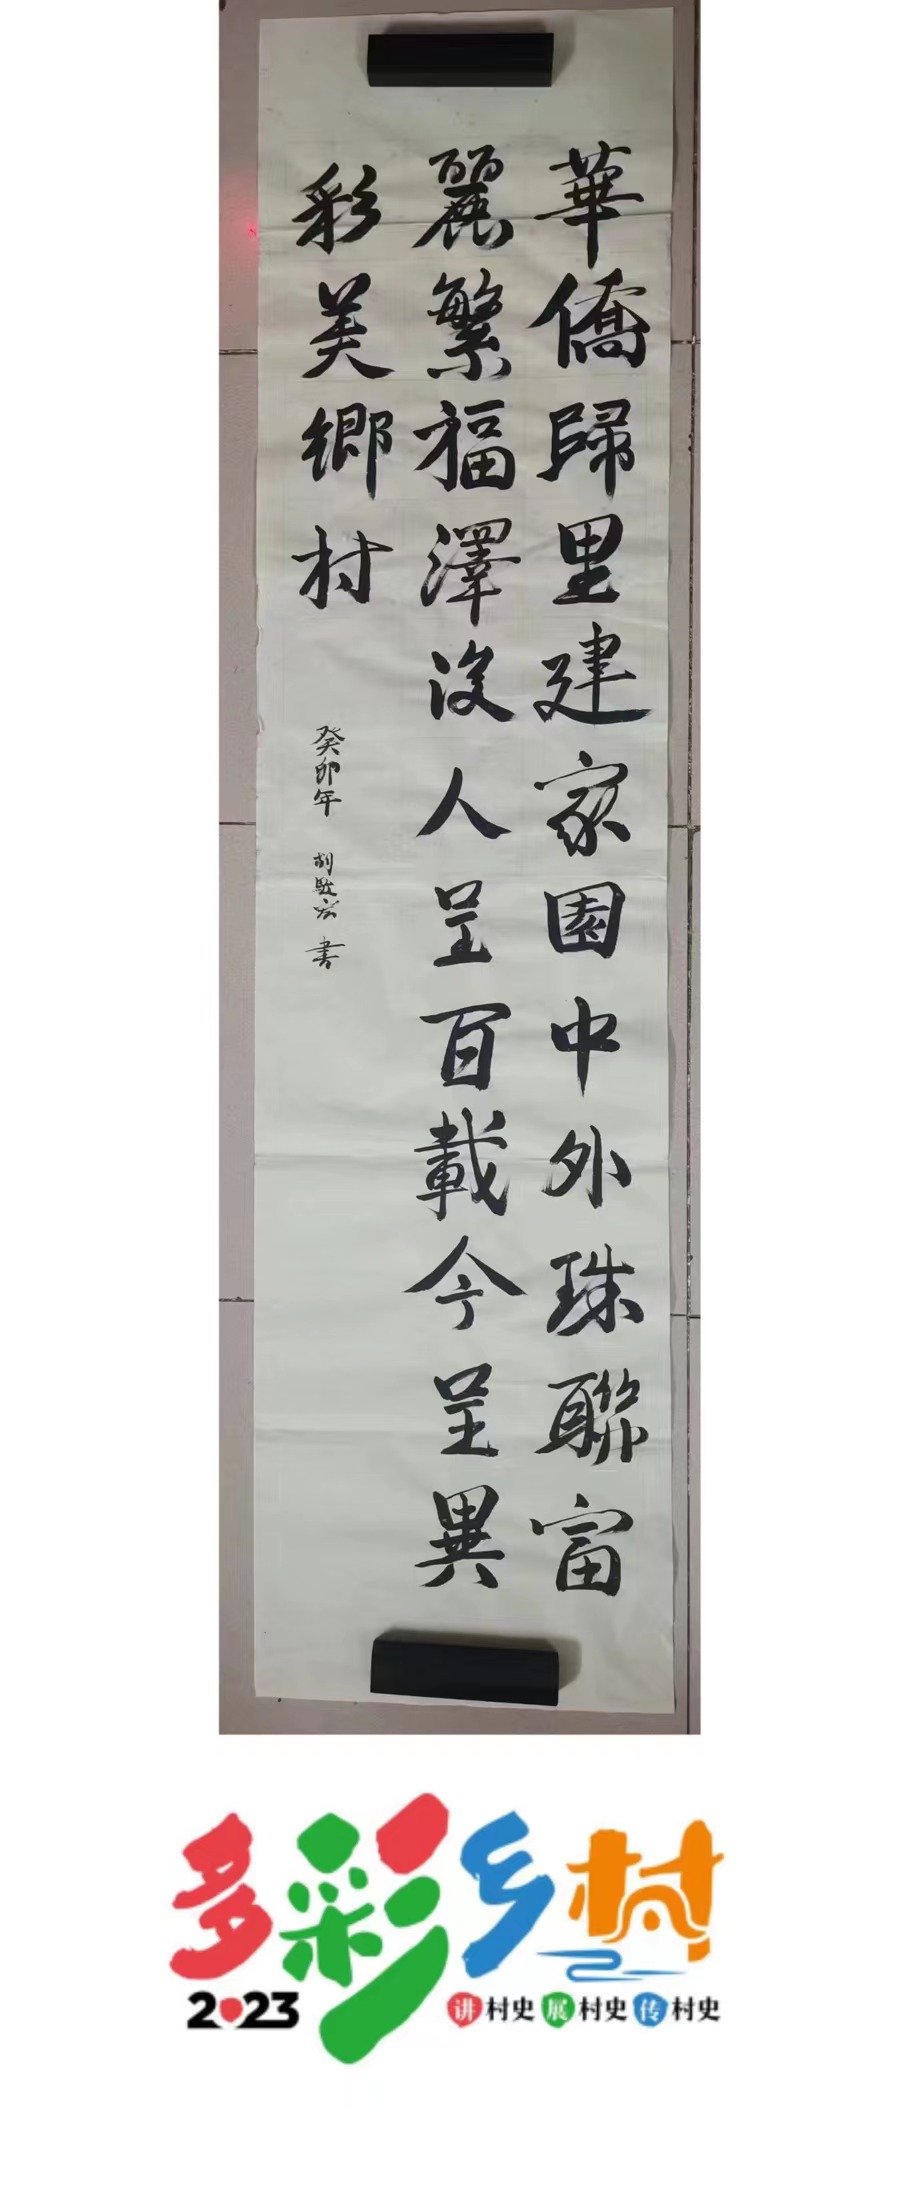 華僑歸里建家園中外珠聯富
麗繁福澤後人呈百載今呈異
彩美鄉村
癸卯年 書
多彩乡村
2023
讲村史 展村史 传村史